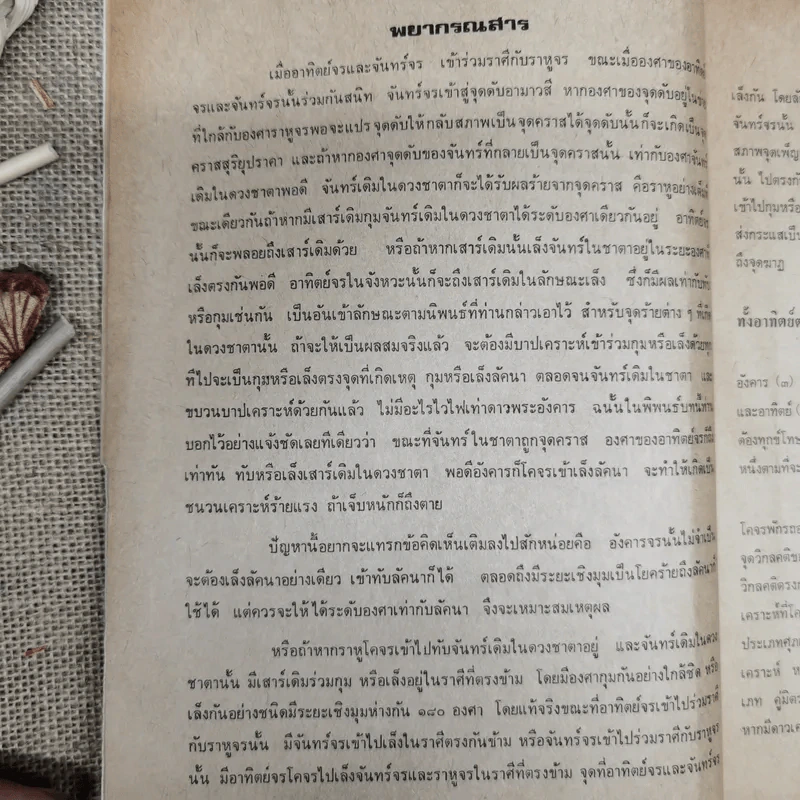 พยากรณสาร
เมื่ออาทิตย์จรและจันทร์จร เข้าร่วมราศีกับราหูจร ขณะเมื่อองศาของอาทิตย์
จรและจันทร์จรนั้นร่วมกันสนิท จันทร์จรเข้าสู่จุดดับอามาวสี หากองศาของจุดดับอยู่ใน
ที่ใกล้กับองศาราหูจรพอจะแปรจุดดับให้กลับสภาพเป็นจุดคราสได้จุดดับนั้นก็จะเกิดเป็น
คราสสุริยุปราคา และถ้าหากองศาจุดดับของจันทร์ที่กลายเป็นจุดคราสนั้น เท่ากับองศาจันทร์
เดิมในดวงชาตาพอดี จันทร์เดิมในดวงชาตาก็จะได้รับผลร้ายจากจุดคราส คือราหูอย่างเต็มที่
ขณะเดียวกันถ้าหากมีเสาร์เดิมกุมจันทร์เดิมในดวงชาตาได้ระดับองศาเดียวกันอยู่ อาทิตย์จร
นั้นก็จะพลอยถึงเสาร์เดิมด้วย หรือถ้าหากเสาร์เดิมนั้นเล็งจันทร์ในชาตาอยู่ในระยะองศาที่
เล็งตรงกันพอดี อาทิตย์จรในจังหวะนั้นก็จะถึงเสาร์เดิมในลักษณะเล็ง ซึ่งก็มีผลเท่ากับทับ
หรือกุมเช่นกัน เป็นอันเข้าลักษณะตามนิพนธ์ที่ท่านกล่าวเอาไว้ สำหรับจุดร้ายต่าง ๆ ที่เกิด
ในดวงชาตานั้น ถ้าจะให้เป็นผลสมจริงแล้ว จะต้องมีบาปเคราะห์เข้าร่วมกุมหรือเล็งด้วยทุก
ทีไปจะเป็นกุมหรือเล็งตรงจุดที่เกิดเหตุ กุมหรือเล็งลัคนา ตลอดจนจันทร์เดิมในชาตา และ
ขบวนบาปเคราะห์ด้วยกันแล้ว ไม่มีอะไรไวไฟเท่าดาวพระอังคาร ฉนั้นในพิพนธ์บทนี้ท่าน
บอกไว้อย่างแจ้งชัดเลยทีเดียวว่า ขณะที่จันทร์ในชาตาถูกจุดคราส องศาของอาทิตย์จรก็มี
เท่าทัน ทับหรือเล็งเสาร์เดิมในดวงชาตา พอดีอังคารก็โคจรเข้าเล็งลัคนา จะทำให้เกิดเป็น
ชนวนเคราะห์ร้ายแรง ถ้าเจ็บหนักก็ถึงตาย
ปัญหานี้อยากจะแทรกข้อคิดเห็นเติมลงไปสักหน่อยคือ อังคารจรนั้นไม่จำเป็น
จะต้องเล็งลัคนาอย่างเดียว เข้าทับลัคนาก็ได้ ตลอดถึงมีระยะเชิงมุมเป็นโยคร้ายถึงลัคนาก็
ใช้ได้ แต่ควรจะให้ได้ระดับองศาเท่ากับลัคนา จึงจะเหมาะสมเหตุผล
หรือถ้าหากราหูโคจรเข้าไปทับจันทร์เดิมในดวงชาตาอยู่ และจันทร์เดิมในดวง
ชาตานั้น มีเสาร์เดิมร่วมกุม หรือเล็งอยู่ในราศีที่ตรงข้าม โดยมีองศากุมกันอย่างใกล้ชิด หรือ
เล็งกันอย่างชนิดมีระยะเชิงมุมห่างกัน ๑๘๐ องศา โดยแท้จริงขณะที่อาทิตย์จรเข้าไปร่วมราศี
กับราหูจรนั้น มีจันทร์จรเข้าไปเล็งในราศีตรงกันข้าม หรือจันทร์จรเข้าไปร่วมราศีกับราหูจร
นั้น มีอาทิตย์จรโคจรไปเล็งจันทร์จรและราหูจรในราศีที่ตรงข้าม จุดที่อาทิตย์จรและจันทร์จร
เล็งกัน
จันทร์จรนั้น
สภาพจุดเพ็ญ
นั้น ไปตรงกับ
เข้าไปกุมหรือ
ส่งกระแสเป็น
ถึงจุดฆาฏ
ทั้งอาทิตย์
อังคาร (๓)
และอาทิตย์
ต้องทุกข์โทษ
หนึ่งตามที่จะ
โคจรพักรถอย
จุดวิกลคติ
วิกลคติตรง
เคราะห์ที่โค
ประเภทศุภ
เคราะห์
เภท คู่มิตร
หากมีดาวเค